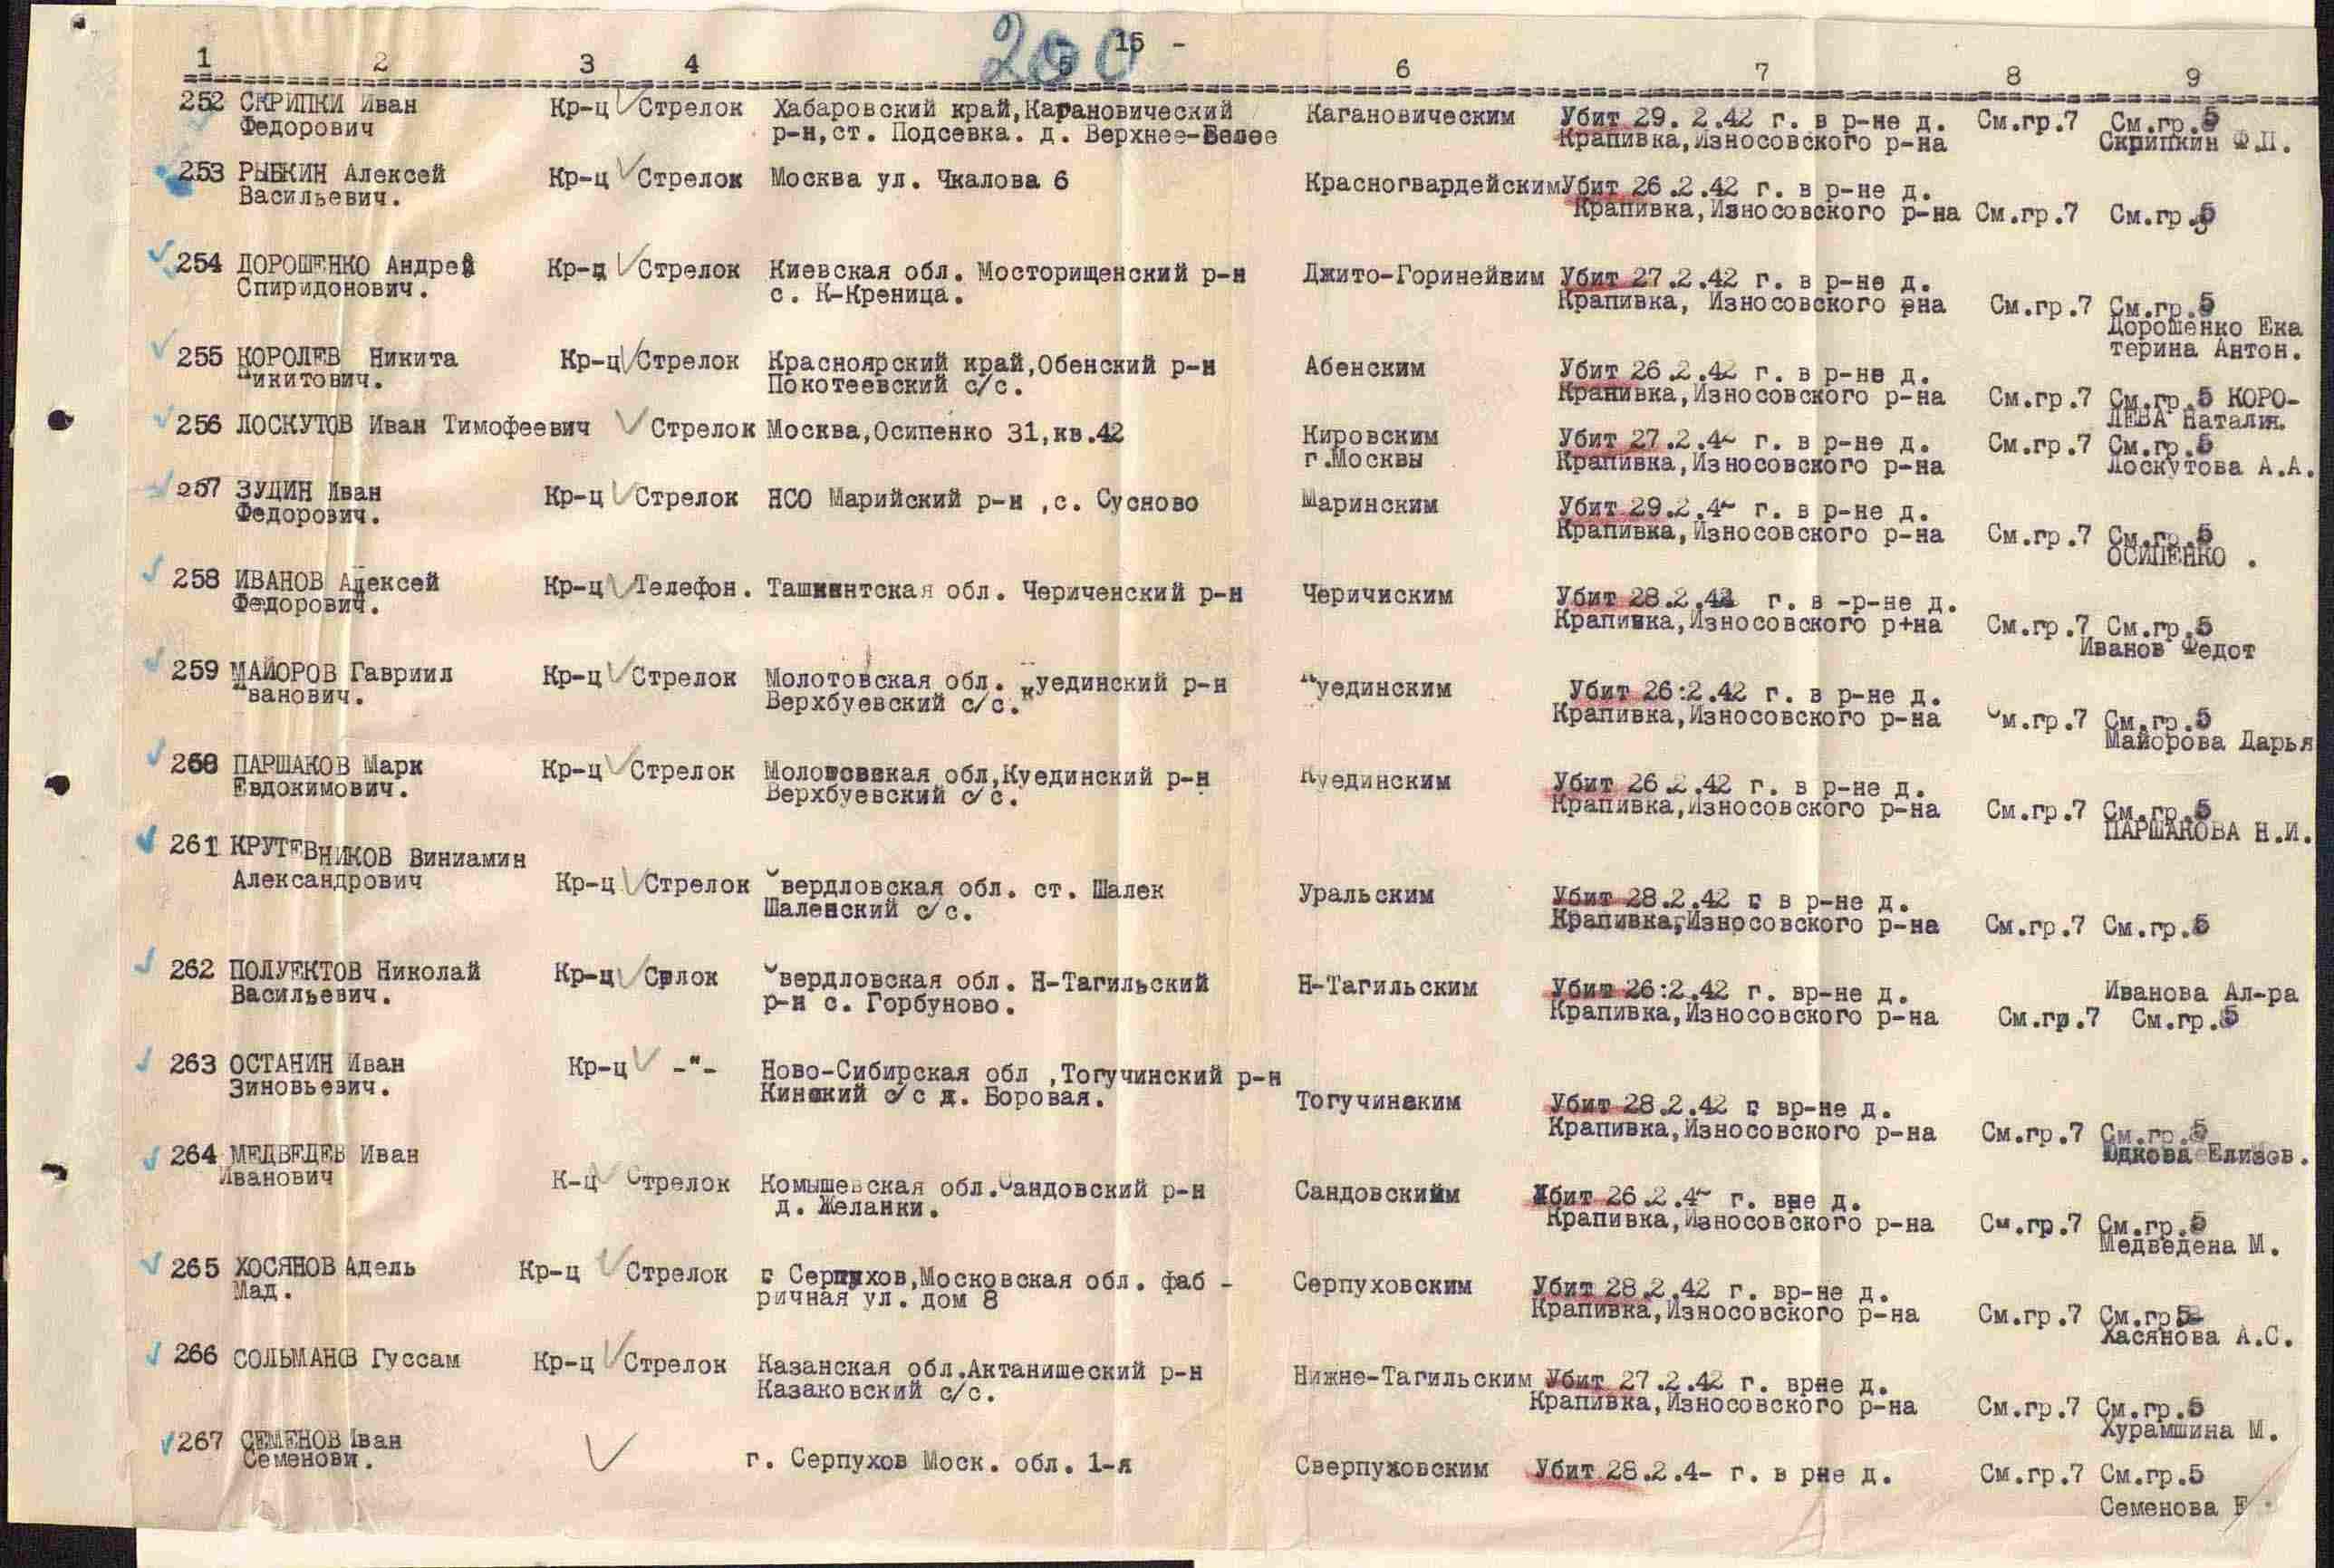 200
- 15 -
1 2 3 4 5 6 7 8 9
252 СКРИПКИ Иван Кр-ц Стрелок Хабаровский край,Карановический Кагановическим Убит 29. 2.42 г. в р-не д. См.гр.7 См.гр.5
Федорович р-н,ст. Подсевка. д. Верхнее-Белое Крапивка,Износовского р-на Скрипкин Ф.П.
253 РЫБКИН Алексей Кр-ц Стрелок Москва ул. Чкалова 6 Красногвардейским Убит 26.2.42 г. в р-не д.
Васильевич. Крапивка,Износовского р-на См.гр.7 См.гр.5
254 ДОРОШЕНКО Андрей Кр-ц Стрелок Киевская обл. Мосторищенский р-н Джито-Горинейвим Убит 27.2.42 г. в р-не д.
Спиридонович. с. К-Креница. Крапивка, Износовского рна См.гр.7 См.гр.5
Дорошенко Ека
терина Антон.
255 КОРОЛЕВ Никита Кр-ц Стрелок Красноярский край,Обенский р-н Абенским Убит 26.2.42 г. в р-не д.
Никитович. Покотеевский с/с. Крапивка,Износовского р-на См.гр.7 См.гр.5 КОРО-
ЛЕВА Наталия.
256 ЛОСКУТОВ Иван Тимофеевич Стрелок Москва,Осипенко 31,кв.42 Кировским Убит 27.2.4~ г. в р-не д. См.гр.7 См.гр.5
г.Москвы Крапивка,Износовского р-на Лоскутова А.А.
257 ЗУДИН Иван Кр-ц Стрелок НСО Марийский р-н ,с. Сусново Маринским Убит 29.2.4~ г. в р-не д.
Федорович. Крапивка,Износовского р-на См.гр.7 См.гр.5
ОСИПЕНКО .
258 ИВАНОВ Алексей Кр-ц Телефон. Ташкентская обл. Чериченский р-н Черичиским Убит 28.2.42 г. в -р-не д.
Федорович. Крапивка,Износовского р+на См.гр.7 См.гр.5
Иванов Федот
259 МАЙОРОВ Гавриил Кр-ц Стрелок Молотовская обл. Куединский р-н Куединским Убит 26:2.42 г. в р-не д.
Иванович. Верхбуевский с/с. Крапивка,Износовского р-на См.гр.7 См.гр.5
Майорова Дарья
260 ПАРШАКОВ Марк Кр-ц Стрелок Молотовская обл,Куединский р-н Куединским Убит 26.2.42 г. в р-не д.
Евдокимович. Верхбуевский с/с. Крапивка,Износовского р-на См.гр.7 См.гр.5
ПАРШАКОВА Н.И.
261 КРУТЕВНИКОВ Виниамин
Александрович Кр-ц Стрелок Свердловская обл. ст. Шалек Уральским Убит 28.2.42 г в р-не д.
Шаленский с/с. Крапивка,Износовского р-на См.гр.7 См.гр.5
262 ПОЛУЕКТОВ Николай Кр-ц Срлок Свердловская обл. Н-Тагильский Н-Тагильским Убит 26:2.42 г. вр-не д. Иванова Ал-ра
Васильевич. р-н с. Горбуново. Крапивка,Износовского р-на См.гр.7 См.гр.5
263 ОСТАНИН Иван Кр-ц -"- Ново-Сибирская обл ,Тогучинский р-н
Зиновьевич. Кинский с/с д. Боровая. Тогучинским Убит 28.2.42 г вр-не д.
Крапивка,Износовского р-на См.гр.7 См.гр.5
Юдкова Елизов.
264 МЕДВЕДЕВ Иван
Иванович К-ц Стрелок Комышевская обл.Сандовский р-н Сандовскийм Убит 26.2.4~ г. вне д.
д. Желанки. Крапивка,Износовского р-на См.гр.7 См.гр.5
Медведена М.
265 ХОСЯНОВ Адель Кр-ц Стрелок г Серпухов,Московская обл. фаб - Серпуховским Убит 28.2.42 г. вр-не д.
Мад. ричная ул. дом 8 Крапивка,Износовского р-на См.гр.7 См.гр5
Хасянова А.С.
266 СОЛЬМАНОВ Гуссам Кр-ц Стрелок Казанская обл.Актанишеский р-н Нижне-Тагильским Убит 27.2.42 г. врне д.
Казаковский с/с. Крапивка,Износовского р-на См.гр.7 См.гр.5
Хурамшина М.
267 СЕМЕНОВ Іван г. Серпухов Моск. обл. 1-я Сверпуховским Убит 28.2.4- г. в рне д. См.гр.7 См.гр.5
Семенови.
Семенова Е